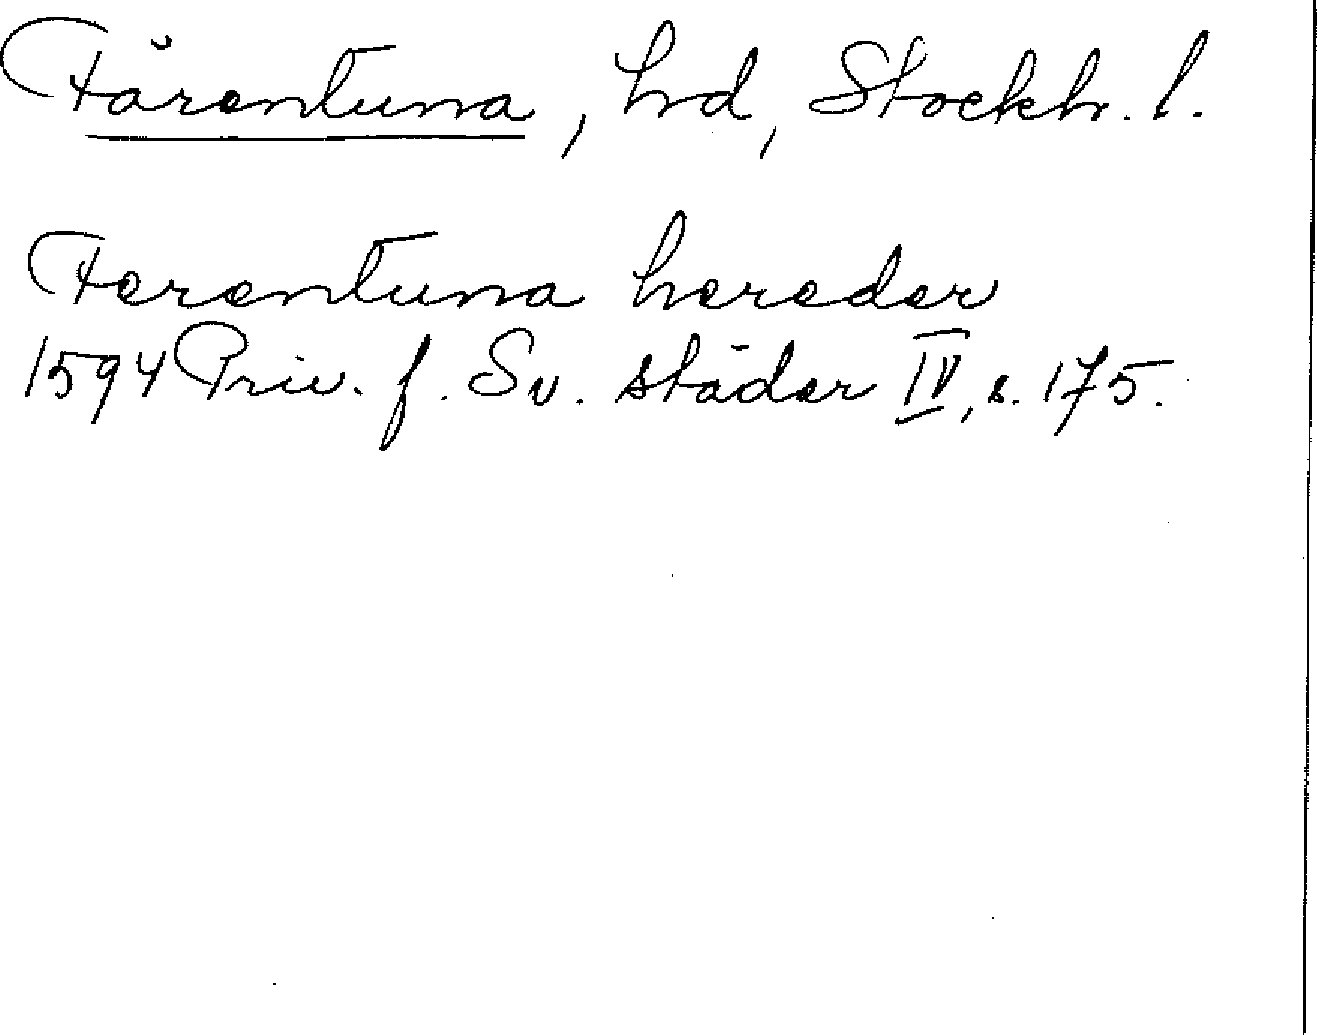 Färentuna, hd, Stockh. l.
Ferentuna hereder
1594 Priv. f. Sv. städer IV, s. 175.